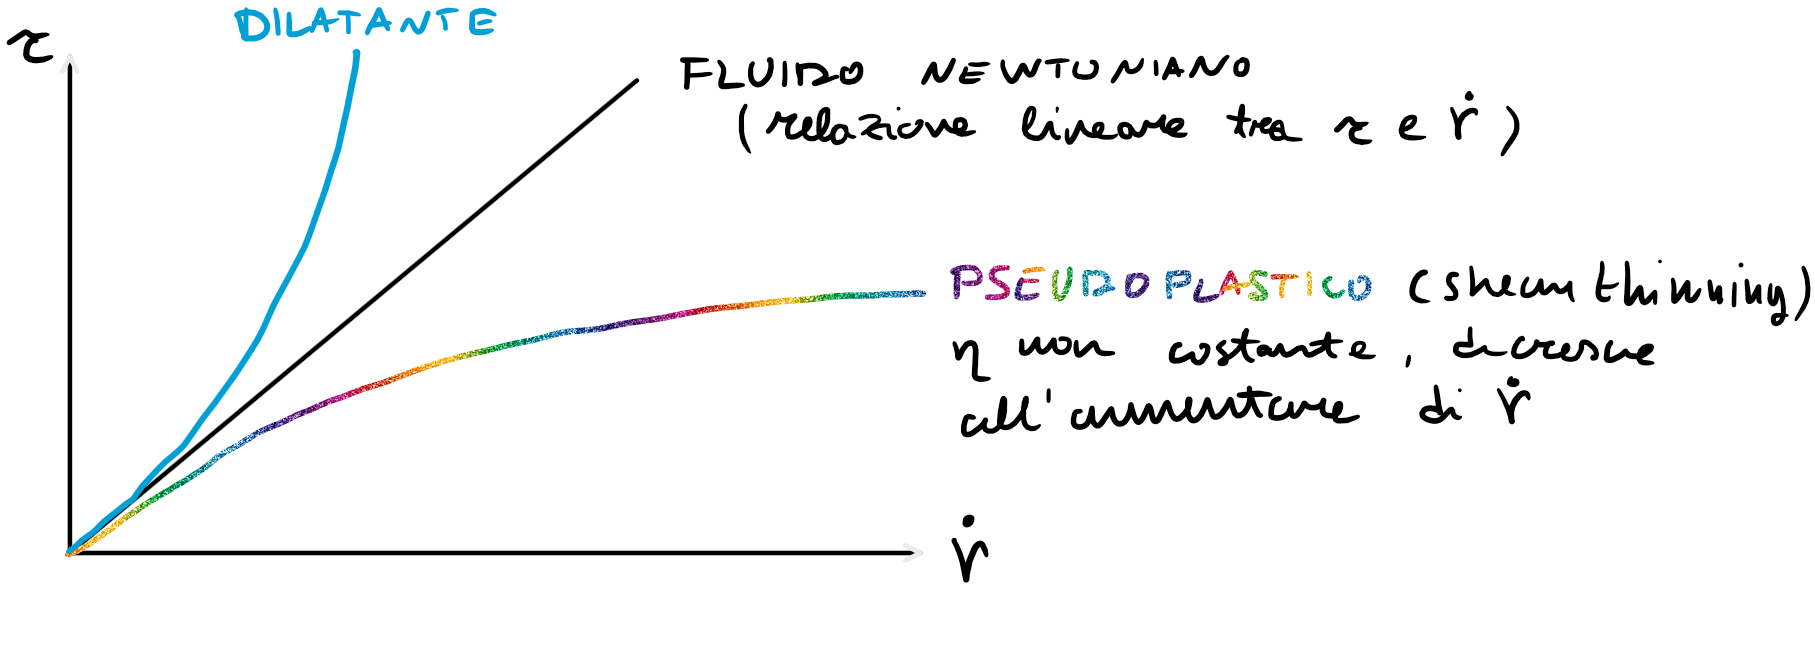 DILATANTE
τ
FLUIDO NEWTONIANO
(relazione lineare tra τ e γ̇)
PSEUDOPLASTICO (shear thinning)
η non costante, decresce
all'aumentare di γ̇
γ̇